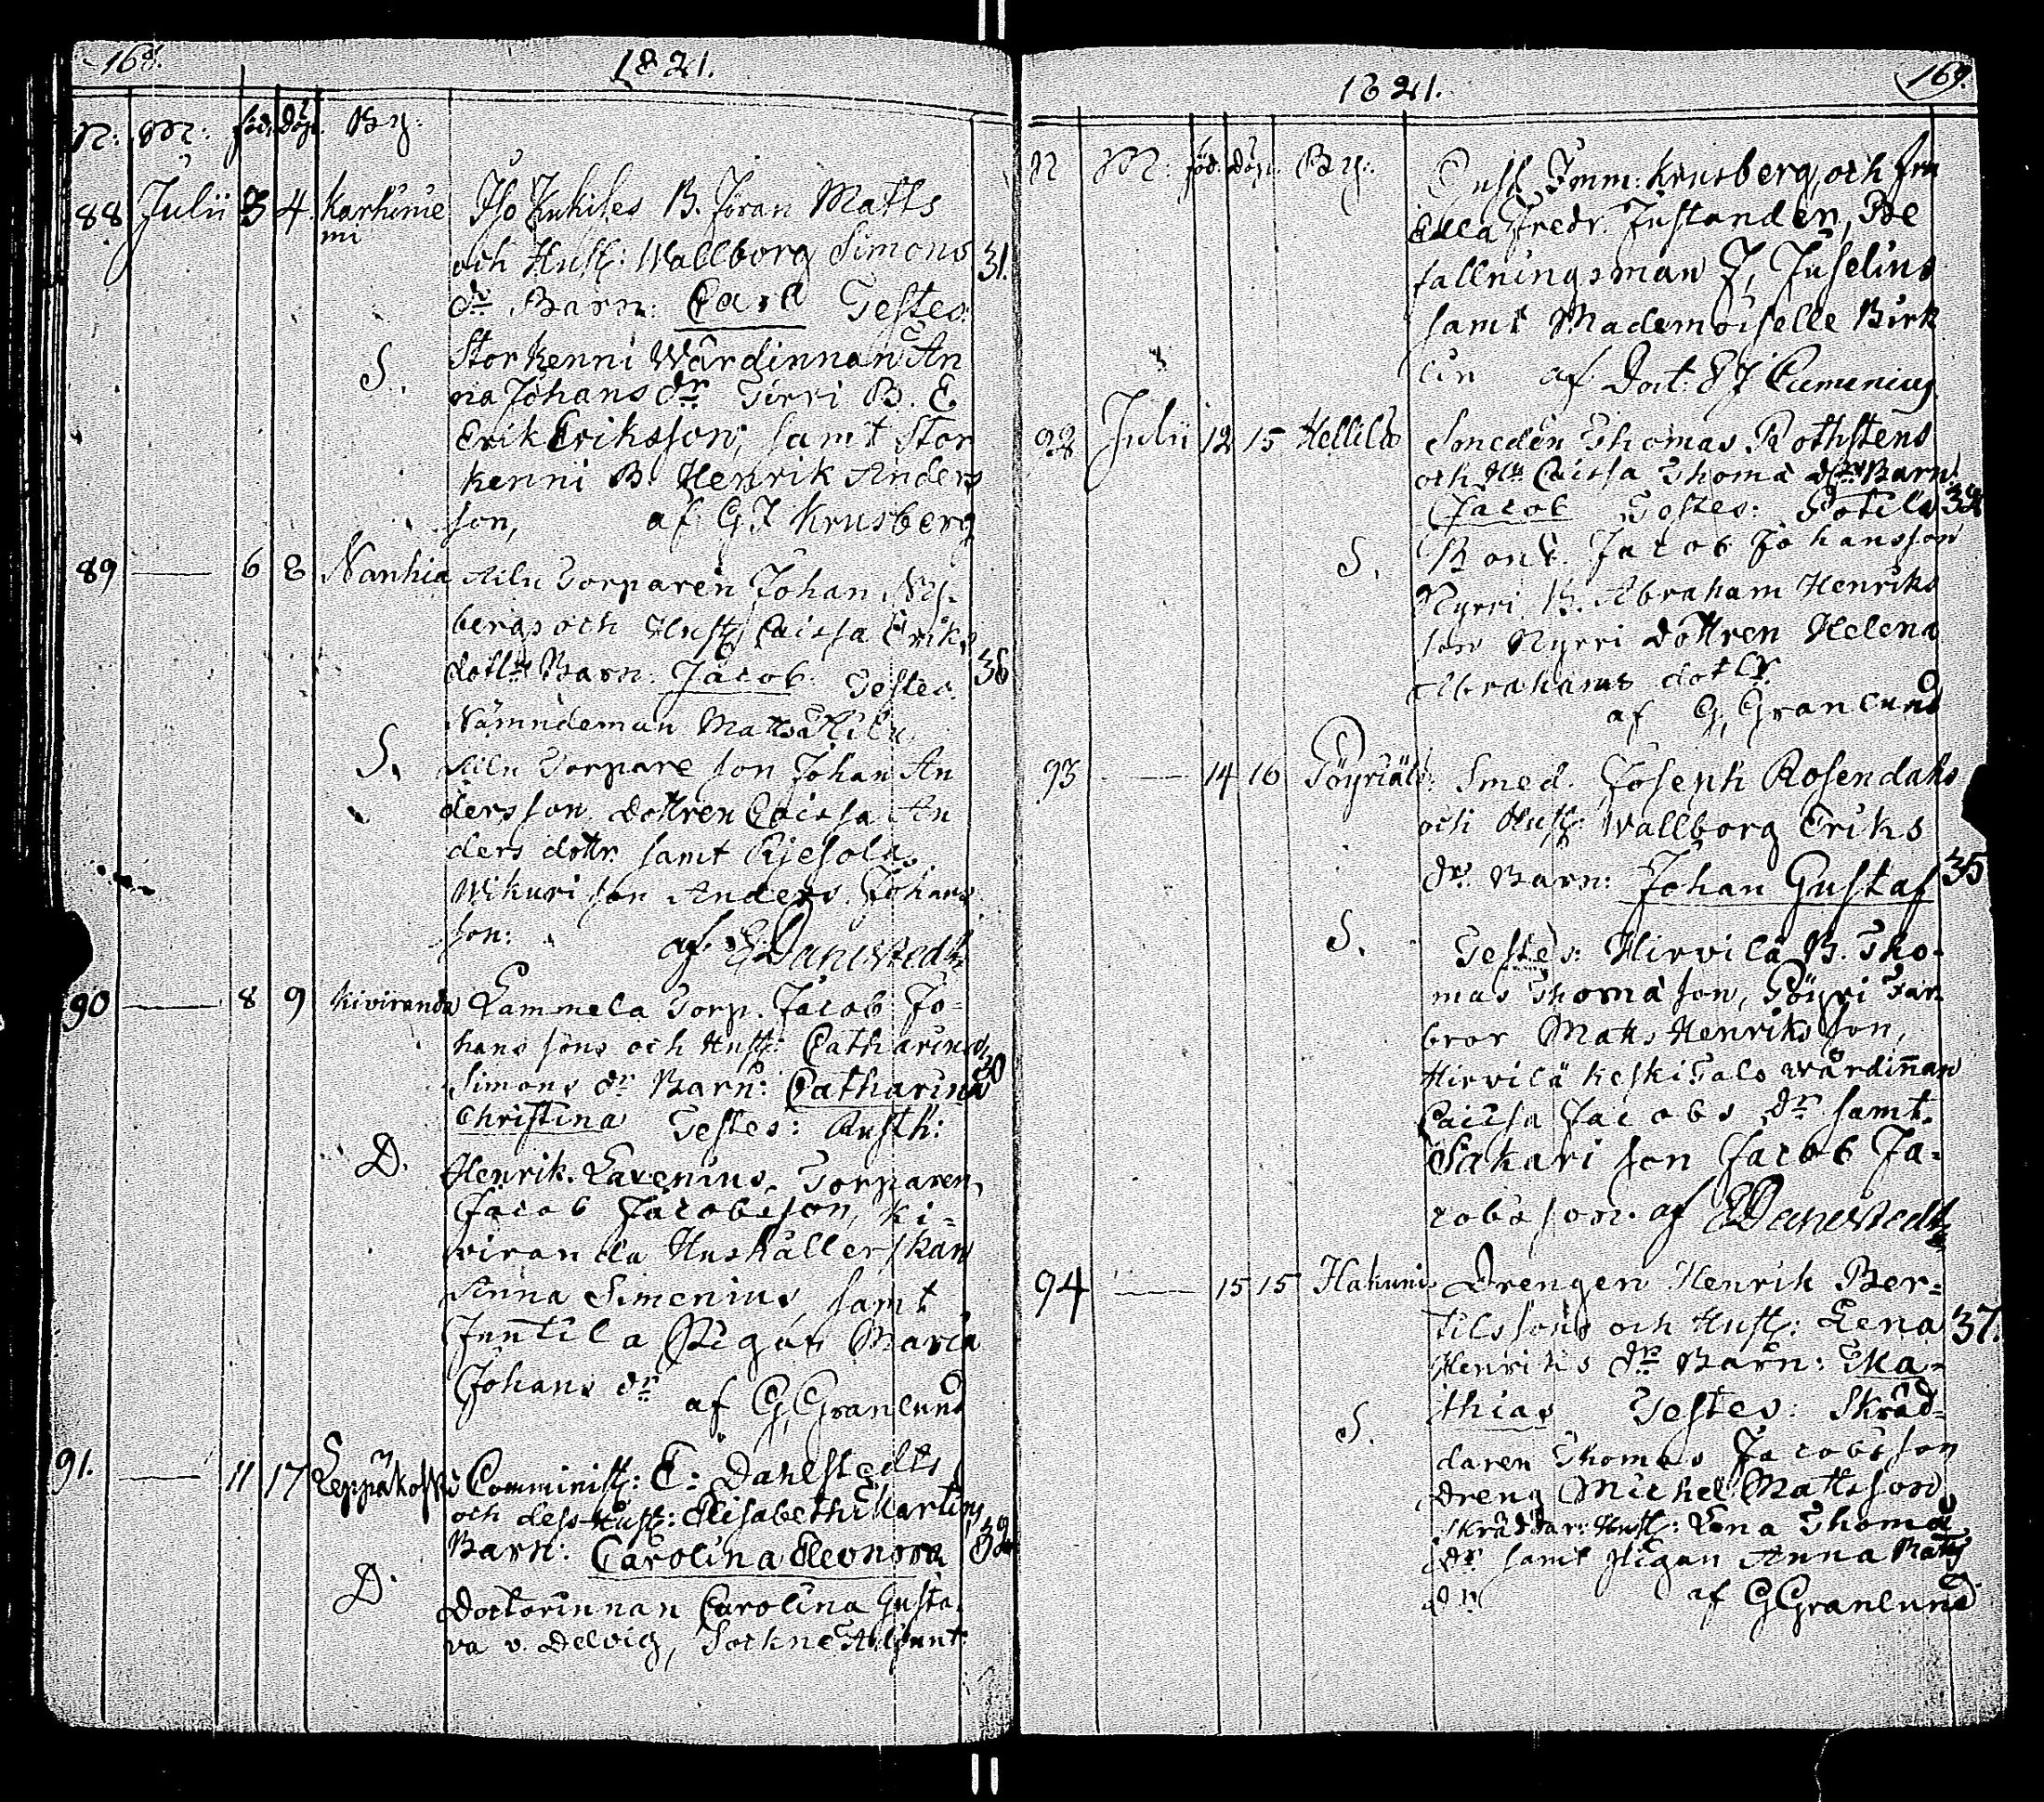 168.
1821.
N: M: föd. Döpt. By:
88 Julii 3 4. Karhunie
mi
Iso Kukiles B. Jöran Matts
och Hust: Wallborg Simons
31.
dr Barn: Carl Testes:
Storkenni Wärdinnan An
S.
na Johans dr Tirri B. E
Erik Eriksson, samt Stor
kenni B. Henrik Anders
son, af G I Krusberg
89 — 6 8 Nanhia
Ailu Torparen Johan Ny-
bergs och Hust: Caissa Eriks
dottr Barn: Jacob. Testes.
36
Nämndeman Matts Ailu
S.
Ailu Torpare son Johan An
dersson Dottren Caissa An
ders dottr samt Rjesola
Wikuri son Anders Johans
son: af E Dahlstedt
90 — 8 9 Kiviranda
Lammela Torp. Jacob Jo-
hans sons och Hust: Catharina
30
Simons dr Barn: Catharina
Christina Testes: Rusth:
D.
Henrik Lavenius, Torparen
Jacob Jacobsson, Ki-
viranda Hushållerskan
Anna Simenius samt
Junttila Pigan Maria
Johans dr af G Granlund
91. — 11 17 Leppäkoski
Comminist: E: Dahlstedts
och dess Hust: Elisabeth Martins
Barn: Carolina Eleonora
32
D.
Doctorinnan Carolina Gusta
va v. Delvig, Sockne Adjunt
169.
1821.
N M: föd. Döpt. By:
Cust Imm: Krusberg och fru
Ulla Fredr. Justander, Be
fallningsman J, Juselius
samt Mademoiselle Birk
lin af Doct: E J Cumenius
92 Julii 12 15 Hellilä
Soneden Thomas Rothstens
och Hu Caissa Thomä dr Barn.
Jacob Testes: Potila
32
S.
Bond. Jacob Johansson
Nyrri B. Abraham Henriks
son Nyrri Dottren Helena
Abrahams dottr.
af G, Granlund
93 — 14 16 Pöyriälä:
Smed. Joseph Rosendahls
och Hust: Wallborg Eriks
dr. Barn: Johan Gustaf
35
S.
Testes: Hirvilä B. Tho-
mas Thomä son, Pöyri Far
bror Matts Henriksson,
Hirvilä Keskitalo wärdinnan
Caissa Jacobs dr samt.
Sakari son Jacob Ja-
cobsson. af E Dahlstedt
94 — 15 15 Hakuni
Drengen Henrik Ber-
tilssons och Hust: Lena
37.
Henriks dr Barn: Ma-
thias Testes: Skräd-
S.
daren Thomas Jacobsson
Dreng Michel Mattsson
Skräddar: Hust: Lena Thomä
dr samt Pigan Anna Matts
dr af G Granlund